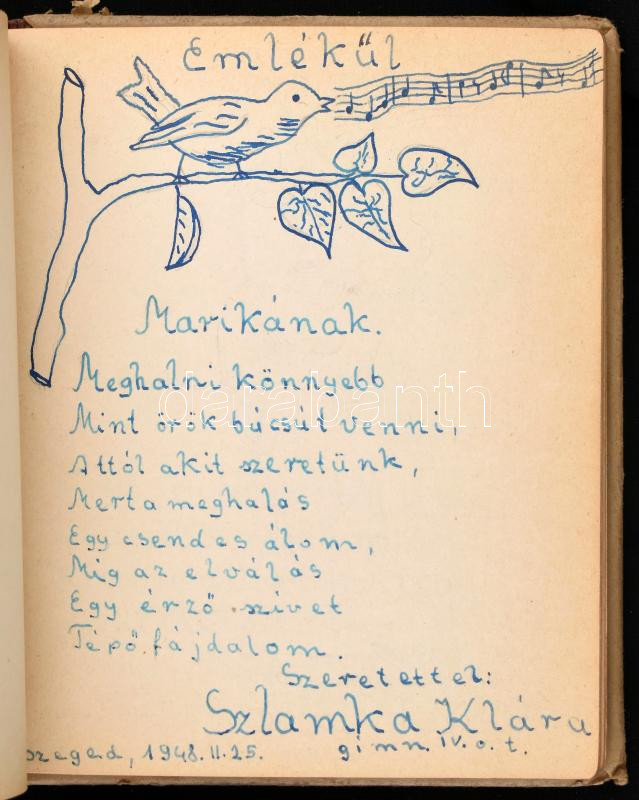 Emlékül
Marikának.
Meghalni könnyebb
Mint örök búcsút venni,
Attól akit szeretünk,
Mert a meghalás
Egy csendes álom,
Mig az elválás
Egy érző szívet
Tépő fájdalom.
Szeretettel:
Szlamka Klára
gimn. IV. o. t.
Szeged, 1948. II. 25.
darabanth